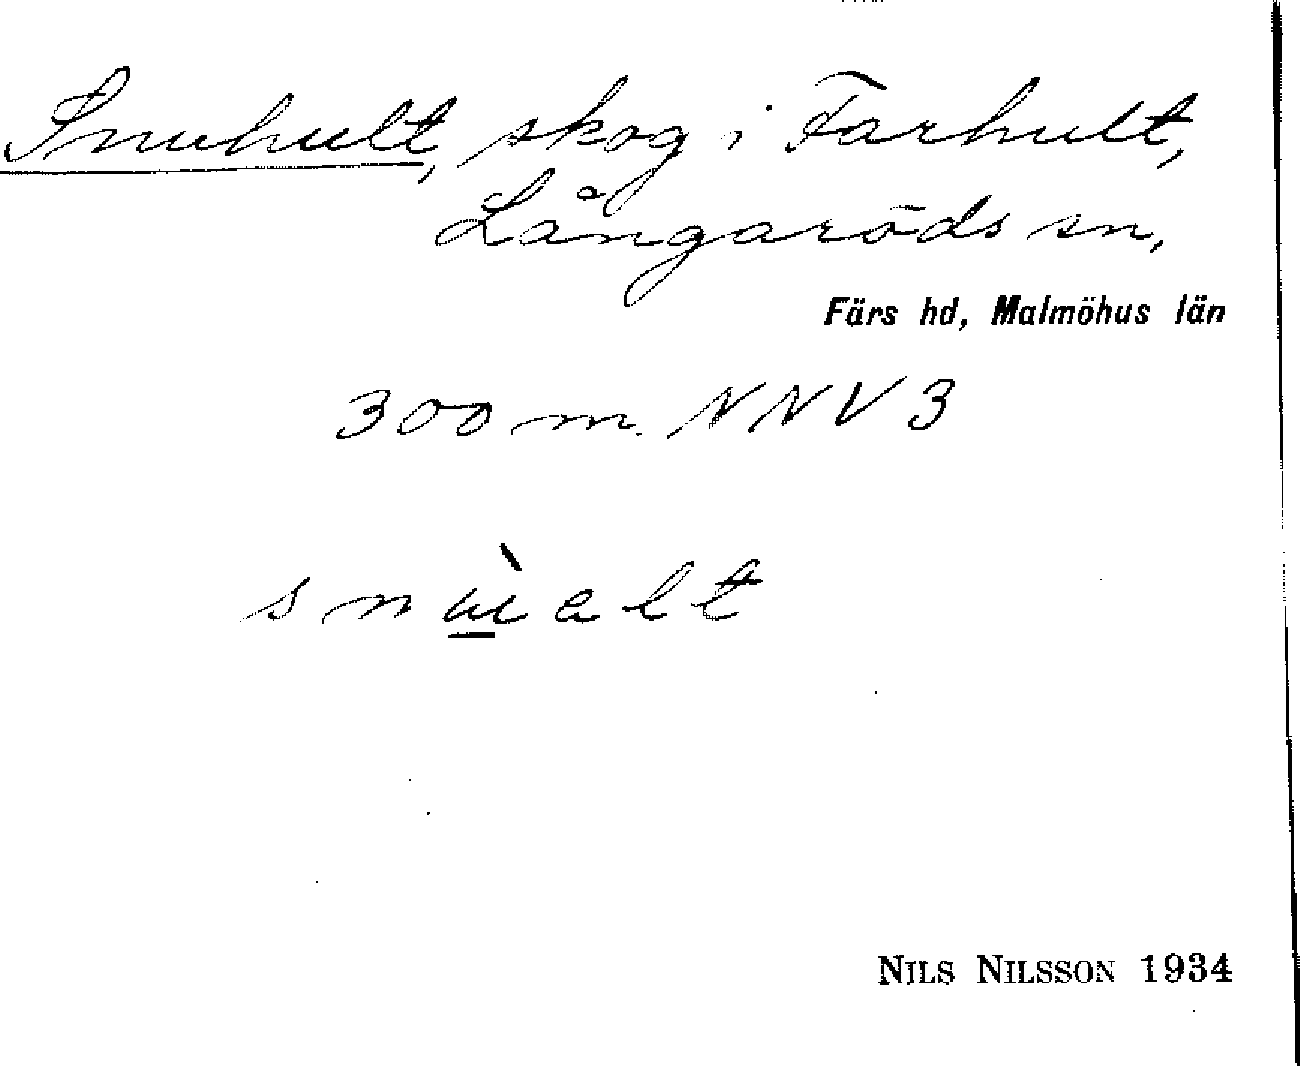 Snuhult, skog i Farhult,
Långaröds sn,
Färs hd, Malmöhus län
300 m. NNV 3
snùalt
NILS NILSSON 1934